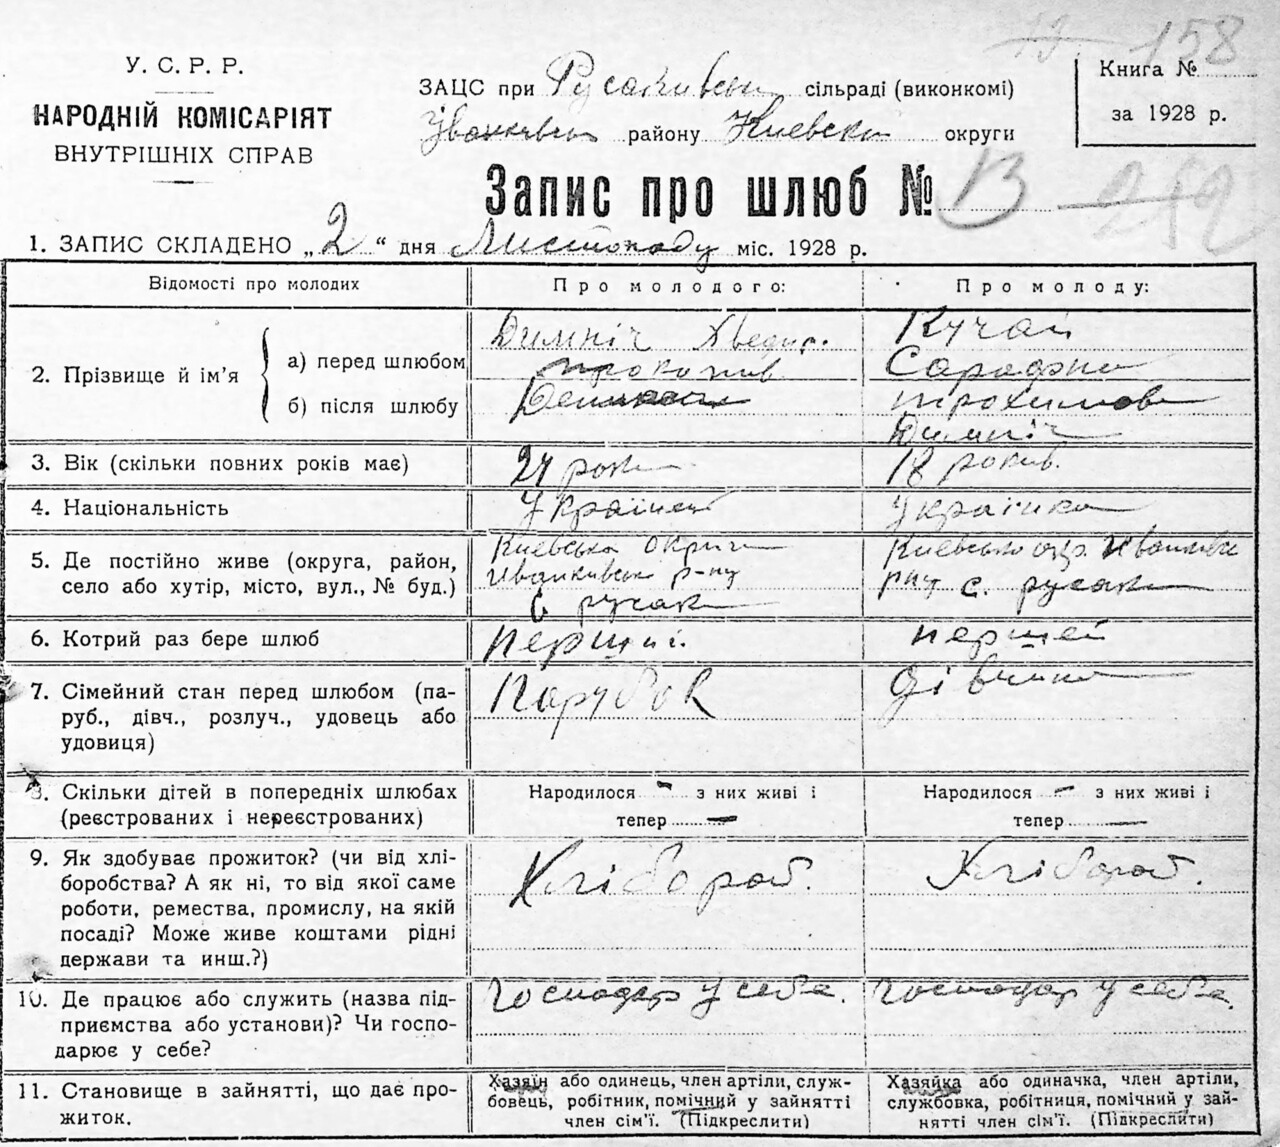 158
У. С. Р. Р.
НАРОДНІЙ КОМІСАРІЯТ
ВНУТРІШНІХ СПРАВ
ЗАЦС при Русаківськ сільраді (виконкомі)
Іванківськ району Киевско округи
Книга №
за 1928 р.
Запис про шлюб № 13
1. ЗАПИС СКЛАДЕНО „2“ дня Листопаду міс. 1928 р.
Відомості про молодих
Про молодого:
Про молоду:
2. Прізвище й ім’я
а) перед шлюбом
б) після шлюбу
Димніч Хведир
Прокопив
Кучай
трохимов
Димніч
3. Вік (скільки повних років має)
роки
18 роков.
4. Національність
Українец
Українка
5. Де постійно живе (округа, район,
село або хутір, місто, вул., № буд.)
Киевська округи
Иванкивськ р-ну
с русаки
рну с. русаки
6. Котрий раз бере шлюб
перший.
першей
7. Сімейний стан перед шлюбом (па-
руб., дівч., розлуч., удовець або
удовиця)
Парубок
дівчина
8. Скільки дітей в попередніх шлюбах
(реєстрованих і нереєстрованих)
Народилося - з них живі і
тепер —
Народилося - з них живі і
тепер —
9. Як здобуває прожиток? (чи від хлі-
боробства? А як ні, то від якої саме
роботи, ремества, промислу, на якій
посаді? Може живе коштами рідні
держави та инш.?)
Хлібороб.
Хлібороб.
10. Де працює або служить (назва під-
приємства або установи)? Чи госпо-
дарює у себе?
Господар у себе.
Господар у себе.
11. Становище в зайнятті, що дає про-
житок.
Хазяїн або одинець, член артіли, служ-
бовець, робітник, помічний у зайнятті
член сім’ї. (Підкреслити)
Хазяйка або одиначка, член артіли,
службовка, робітниця, помічний у зай-
нятті член сім’ї. (Підкреслити)